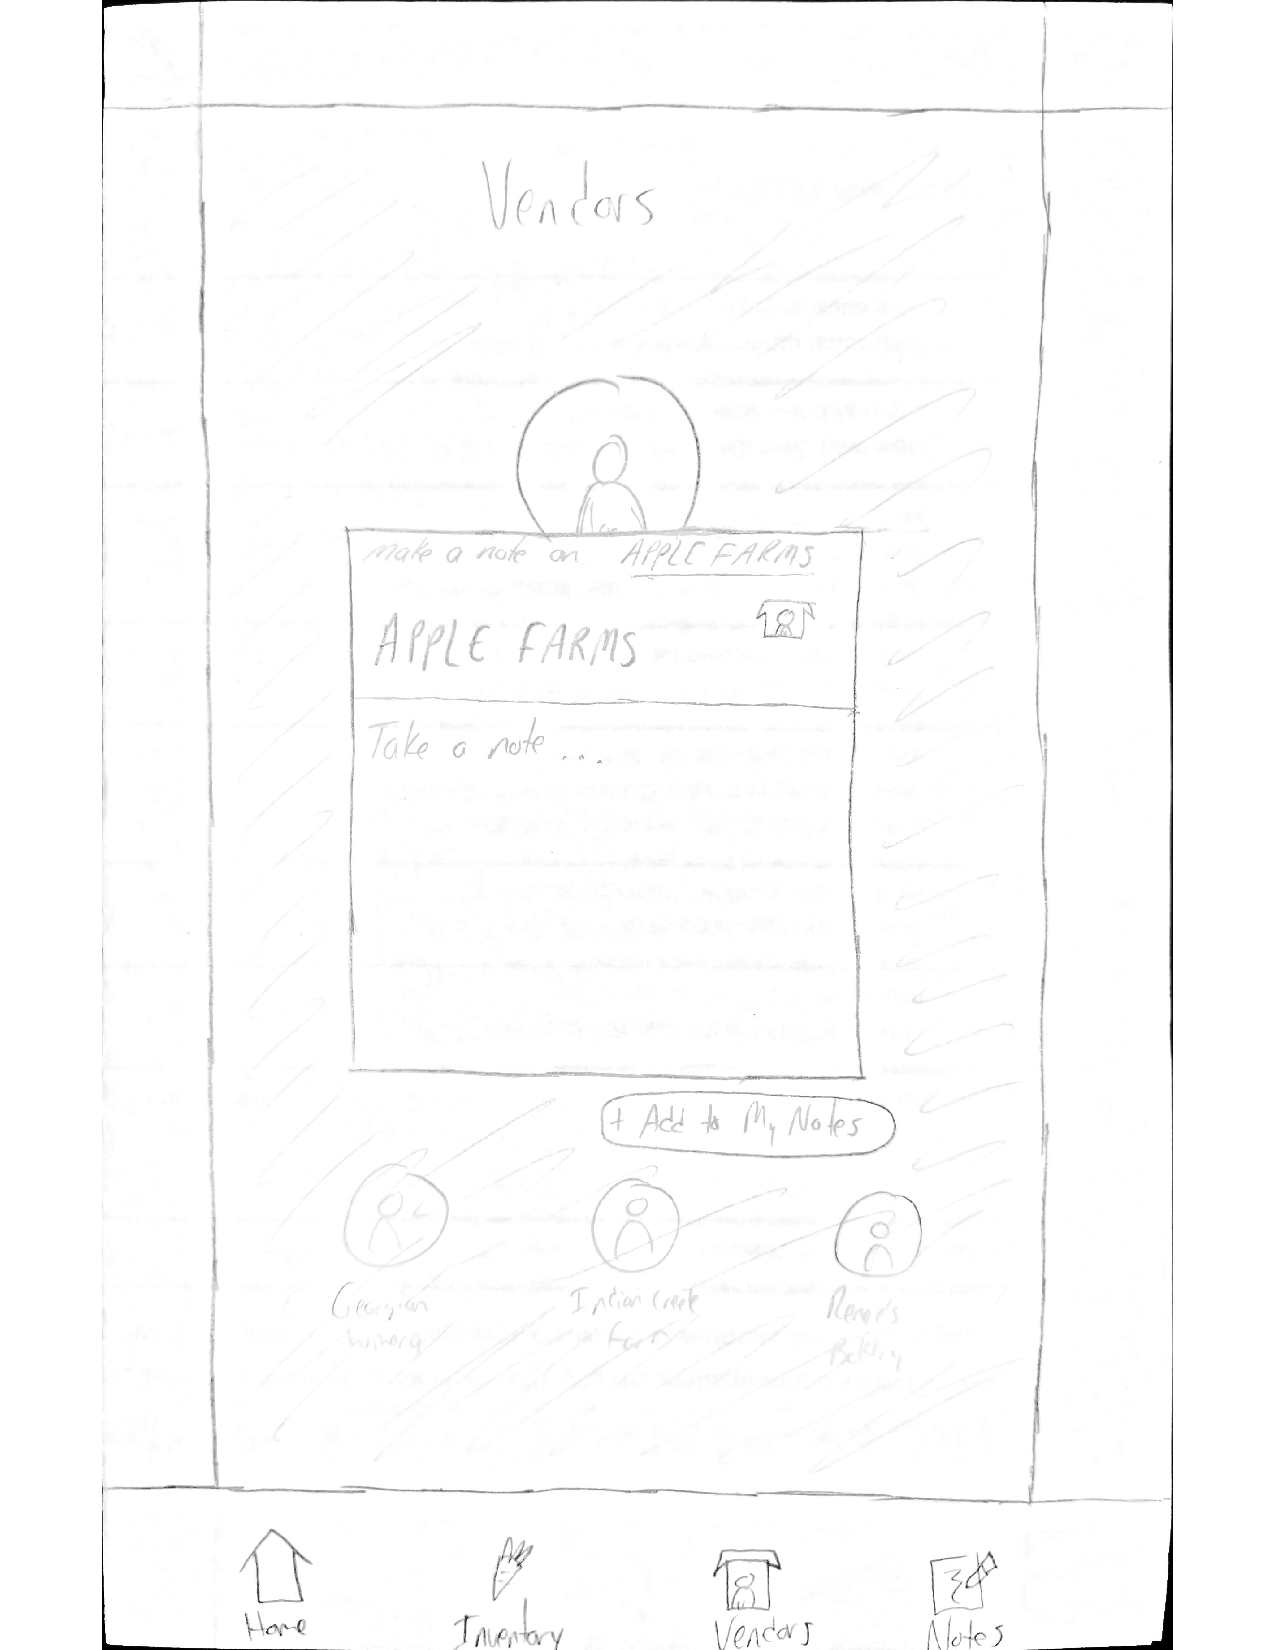 Vendors
make a note on APPLE FARMS
APPLE FARMS
Take a note...
+ Add to My Notes
Georgian Winery
Indian Creek Farm
Renee's Bakery
Home
Inventory
Vendors
Notes